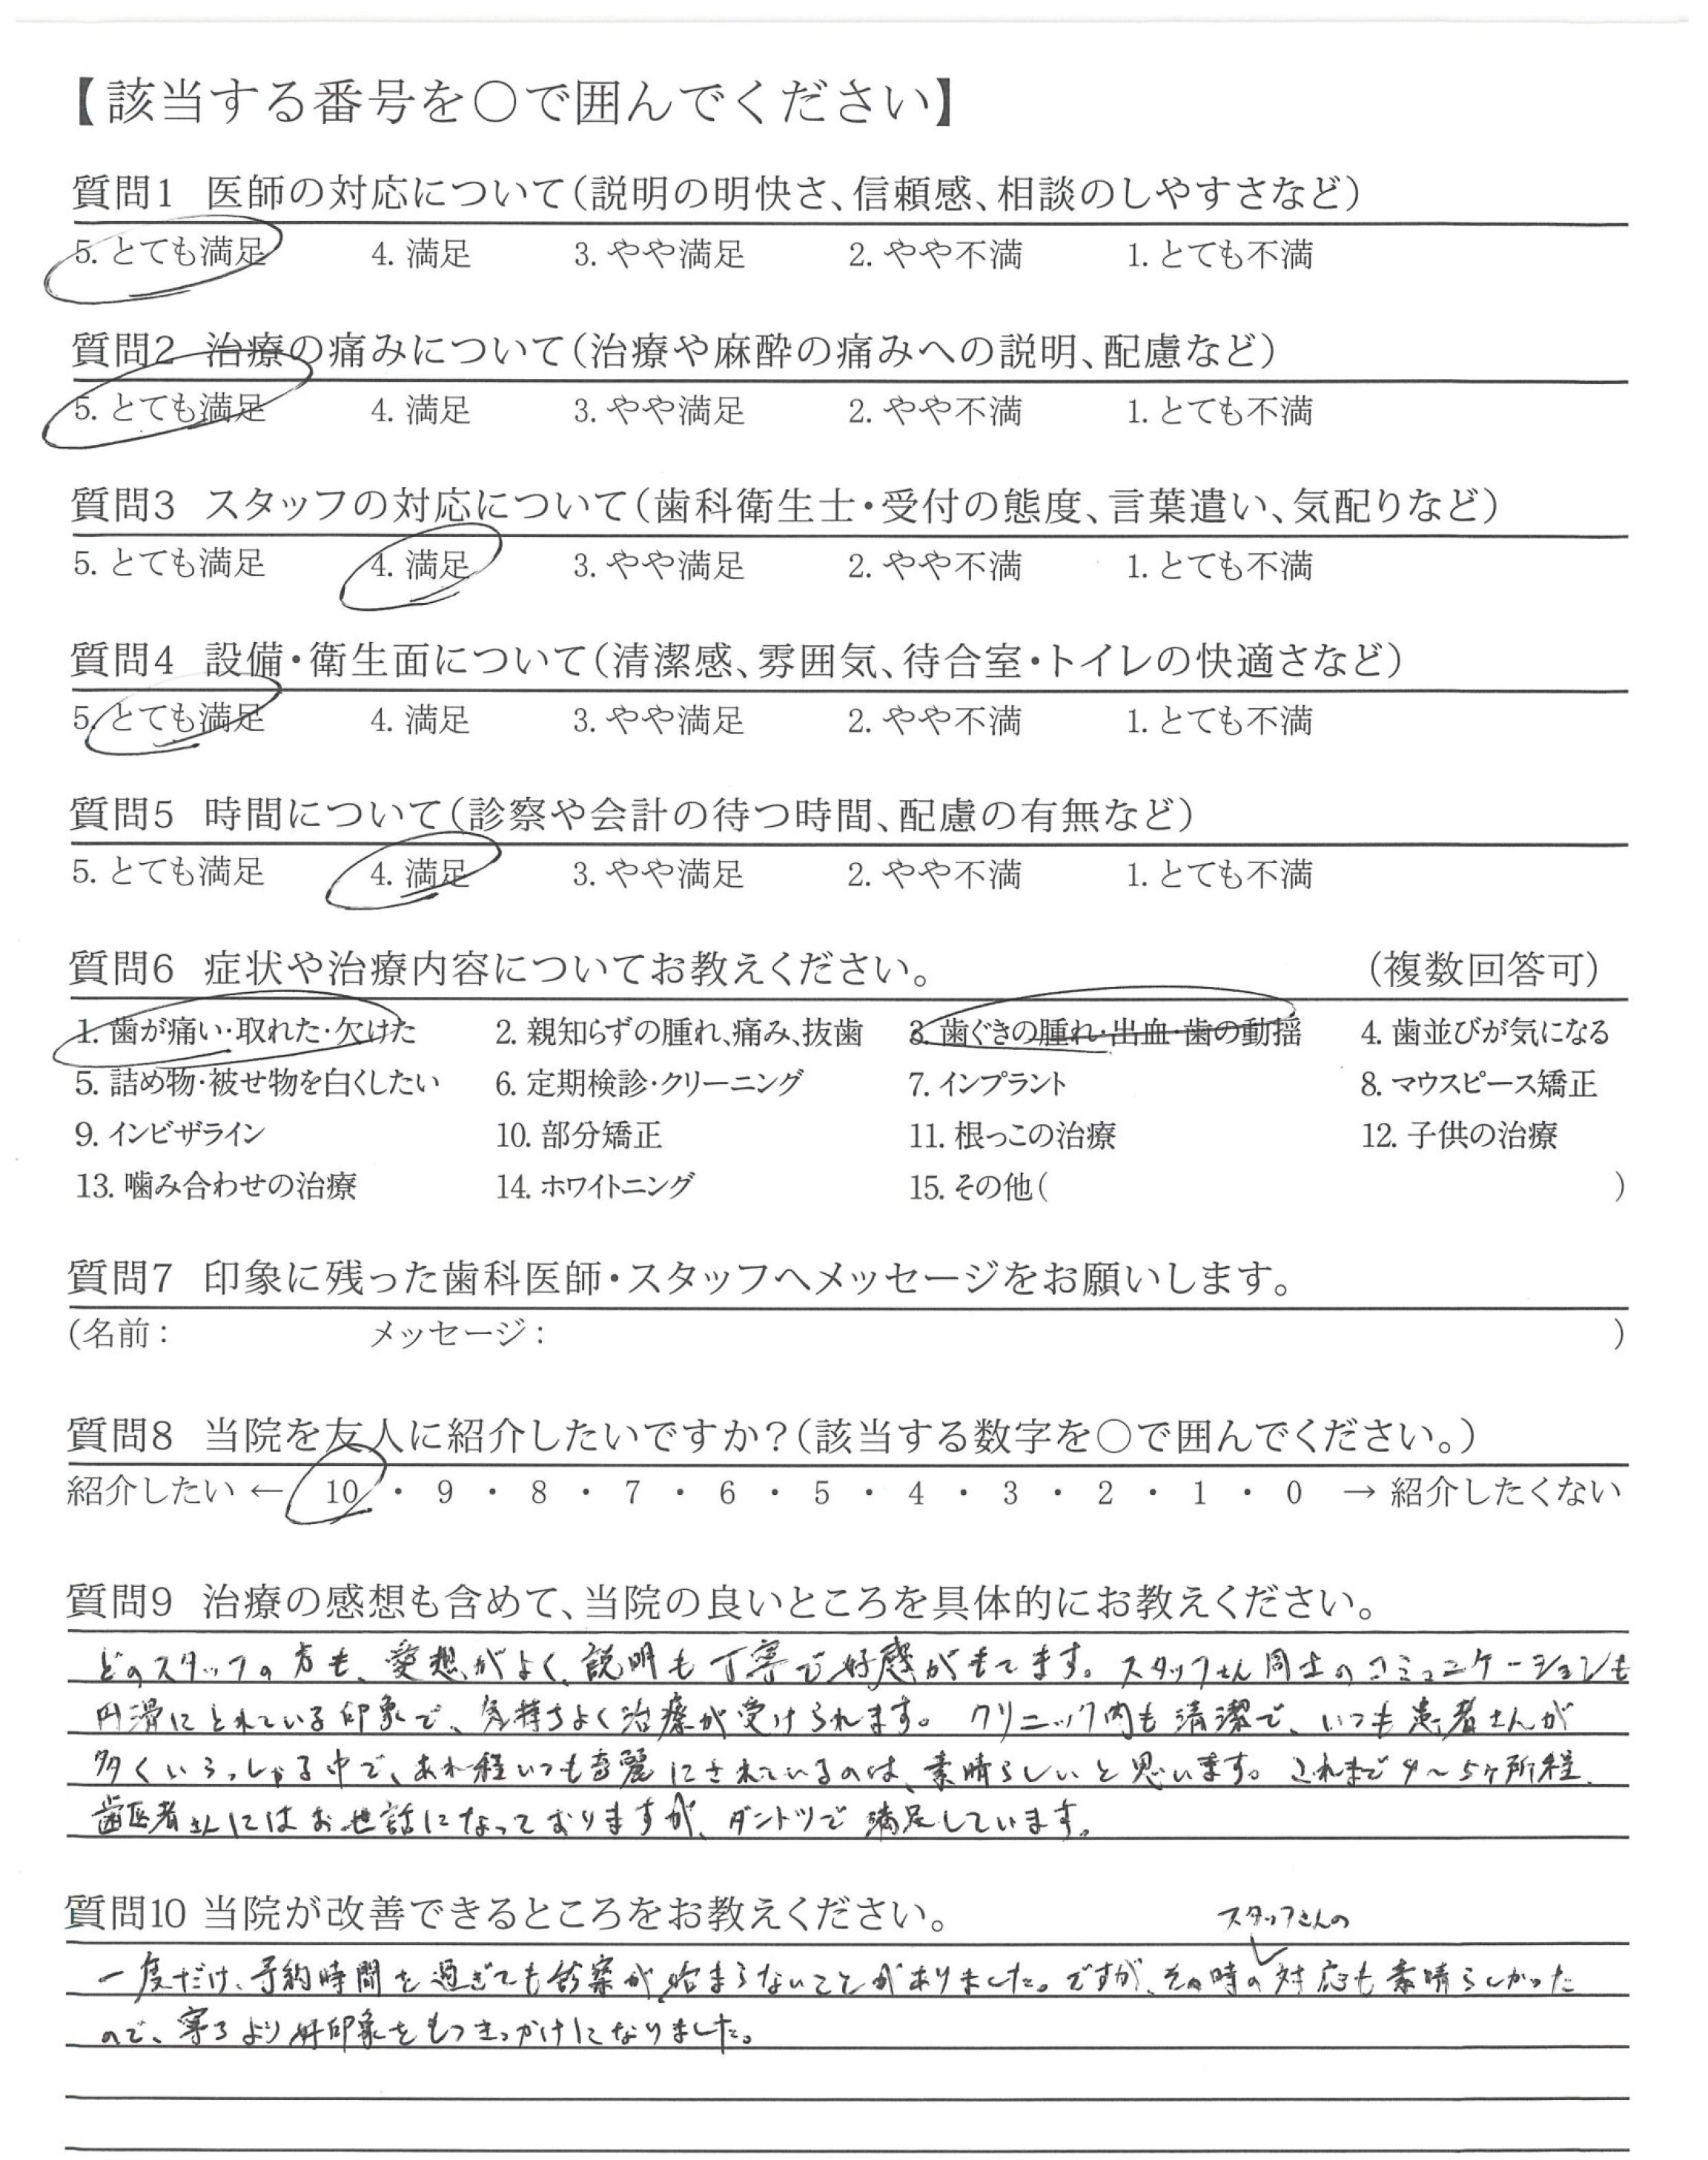 【該当する番号を〇で囲んでください】
質問1 医師の対応について(説明の明快さ、信頼感、相談のしやすさなど)
5. とても満足 4. 満足 3. やや満足 2. やや不満 1. とても不満
質問2 治療の痛みについて(治療や麻酔の痛みへの説明、配慮など)
5. とても満足 4. 満足 3. やや満足 2. やや不満 1. とても不満
質問3 スタッフの対応について(歯科衛生士・受付の態度、言葉遣い、気配りなど)
5. とても満足 4. 満足 3. やや満足 2. やや不満 1. とても不満
質問4 設備・衛生面について(清潔感、雰囲気、待合室・トイレの快適さなど)
5. とても満足 4. 満足 3. やや満足 2. やや不満 1. とても不満
質問5 時間について(診察や会計の待つ時間、配慮の有無など)
5. とても満足 4. 満足 3. やや満足 2. やや不満 1. とても不満
質問6 症状や治療内容についてお教えください。 (複数回答可)
1. 歯が痛い・取れた・欠けた 2. 親知らずの腫れ、痛み、抜歯 3. 歯ぐきの腫れ・出血・歯の動揺 4. 歯並びが気になる
5. 詰め物・被せ物を白くしたい 6. 定期検診・クリーニング 7. インプラント 8. マウスピース矯正
9. インビザライン 10. 部分矯正 11. 根っこの治療 12. 子供の治療
13. 噛み合わせの治療 14. ホワイトニング 15. その他( )
質問7 印象に残った歯科医師・スタッフへメッセージをお願いします。
(名前: メッセージ: )
質問8 当院を友人に紹介したいですか?(該当する数字を〇で囲んでください。)
紹介したい ← 10 ・ 9 ・ 8 ・ 7 ・ 6 ・ 5 ・ 4 ・ 3 ・ 2 ・ 1 ・ 0 → 紹介したくない
質問9 治療の感想も含めて、当院の良いところを具体的にお教えください。
どのスタッフの方も、愛想がよく、説明も丁寧で好感がもてます。スタッフさん同士のコミュニケーションも
円滑にとれている印象で、気持ちよく治療が受けられます。クリニック内も清潔で、いつも患者さんが
多くいらっしゃる中で、あれ程いつも綺麗にされているのは、素晴らしいと思います。これまで4〜5ヶ所程、
歯医者さんにはお世話になっておりますが、ダントツで満足しています。
質問10 当院が改善できるところをお教えください。
スタッフさんの
一度だけ、予約時間を過ぎても診察が始まらないことがありました。ですが、その時の対応も素晴らしかった
ので、寧ろより好印象をもつきっかけになりました。